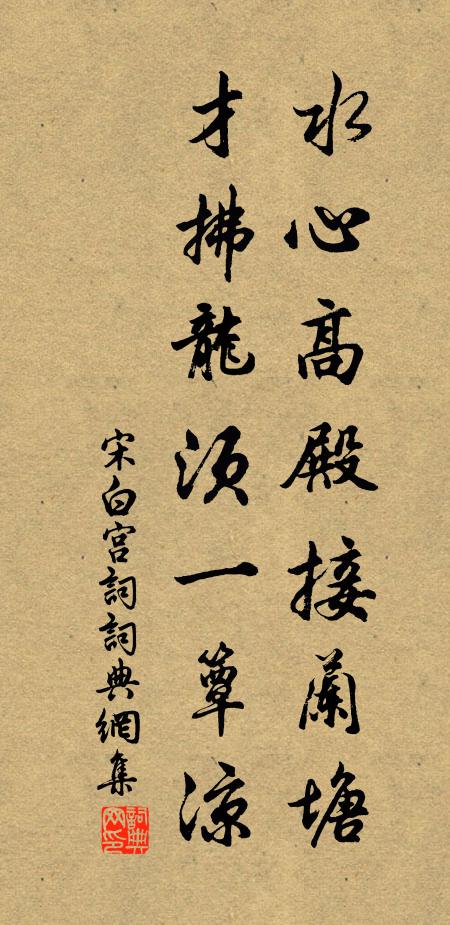 水心高殿接蘭塘
才拂龍須一簟涼
宋白宮詞詞典網集
詞典网印